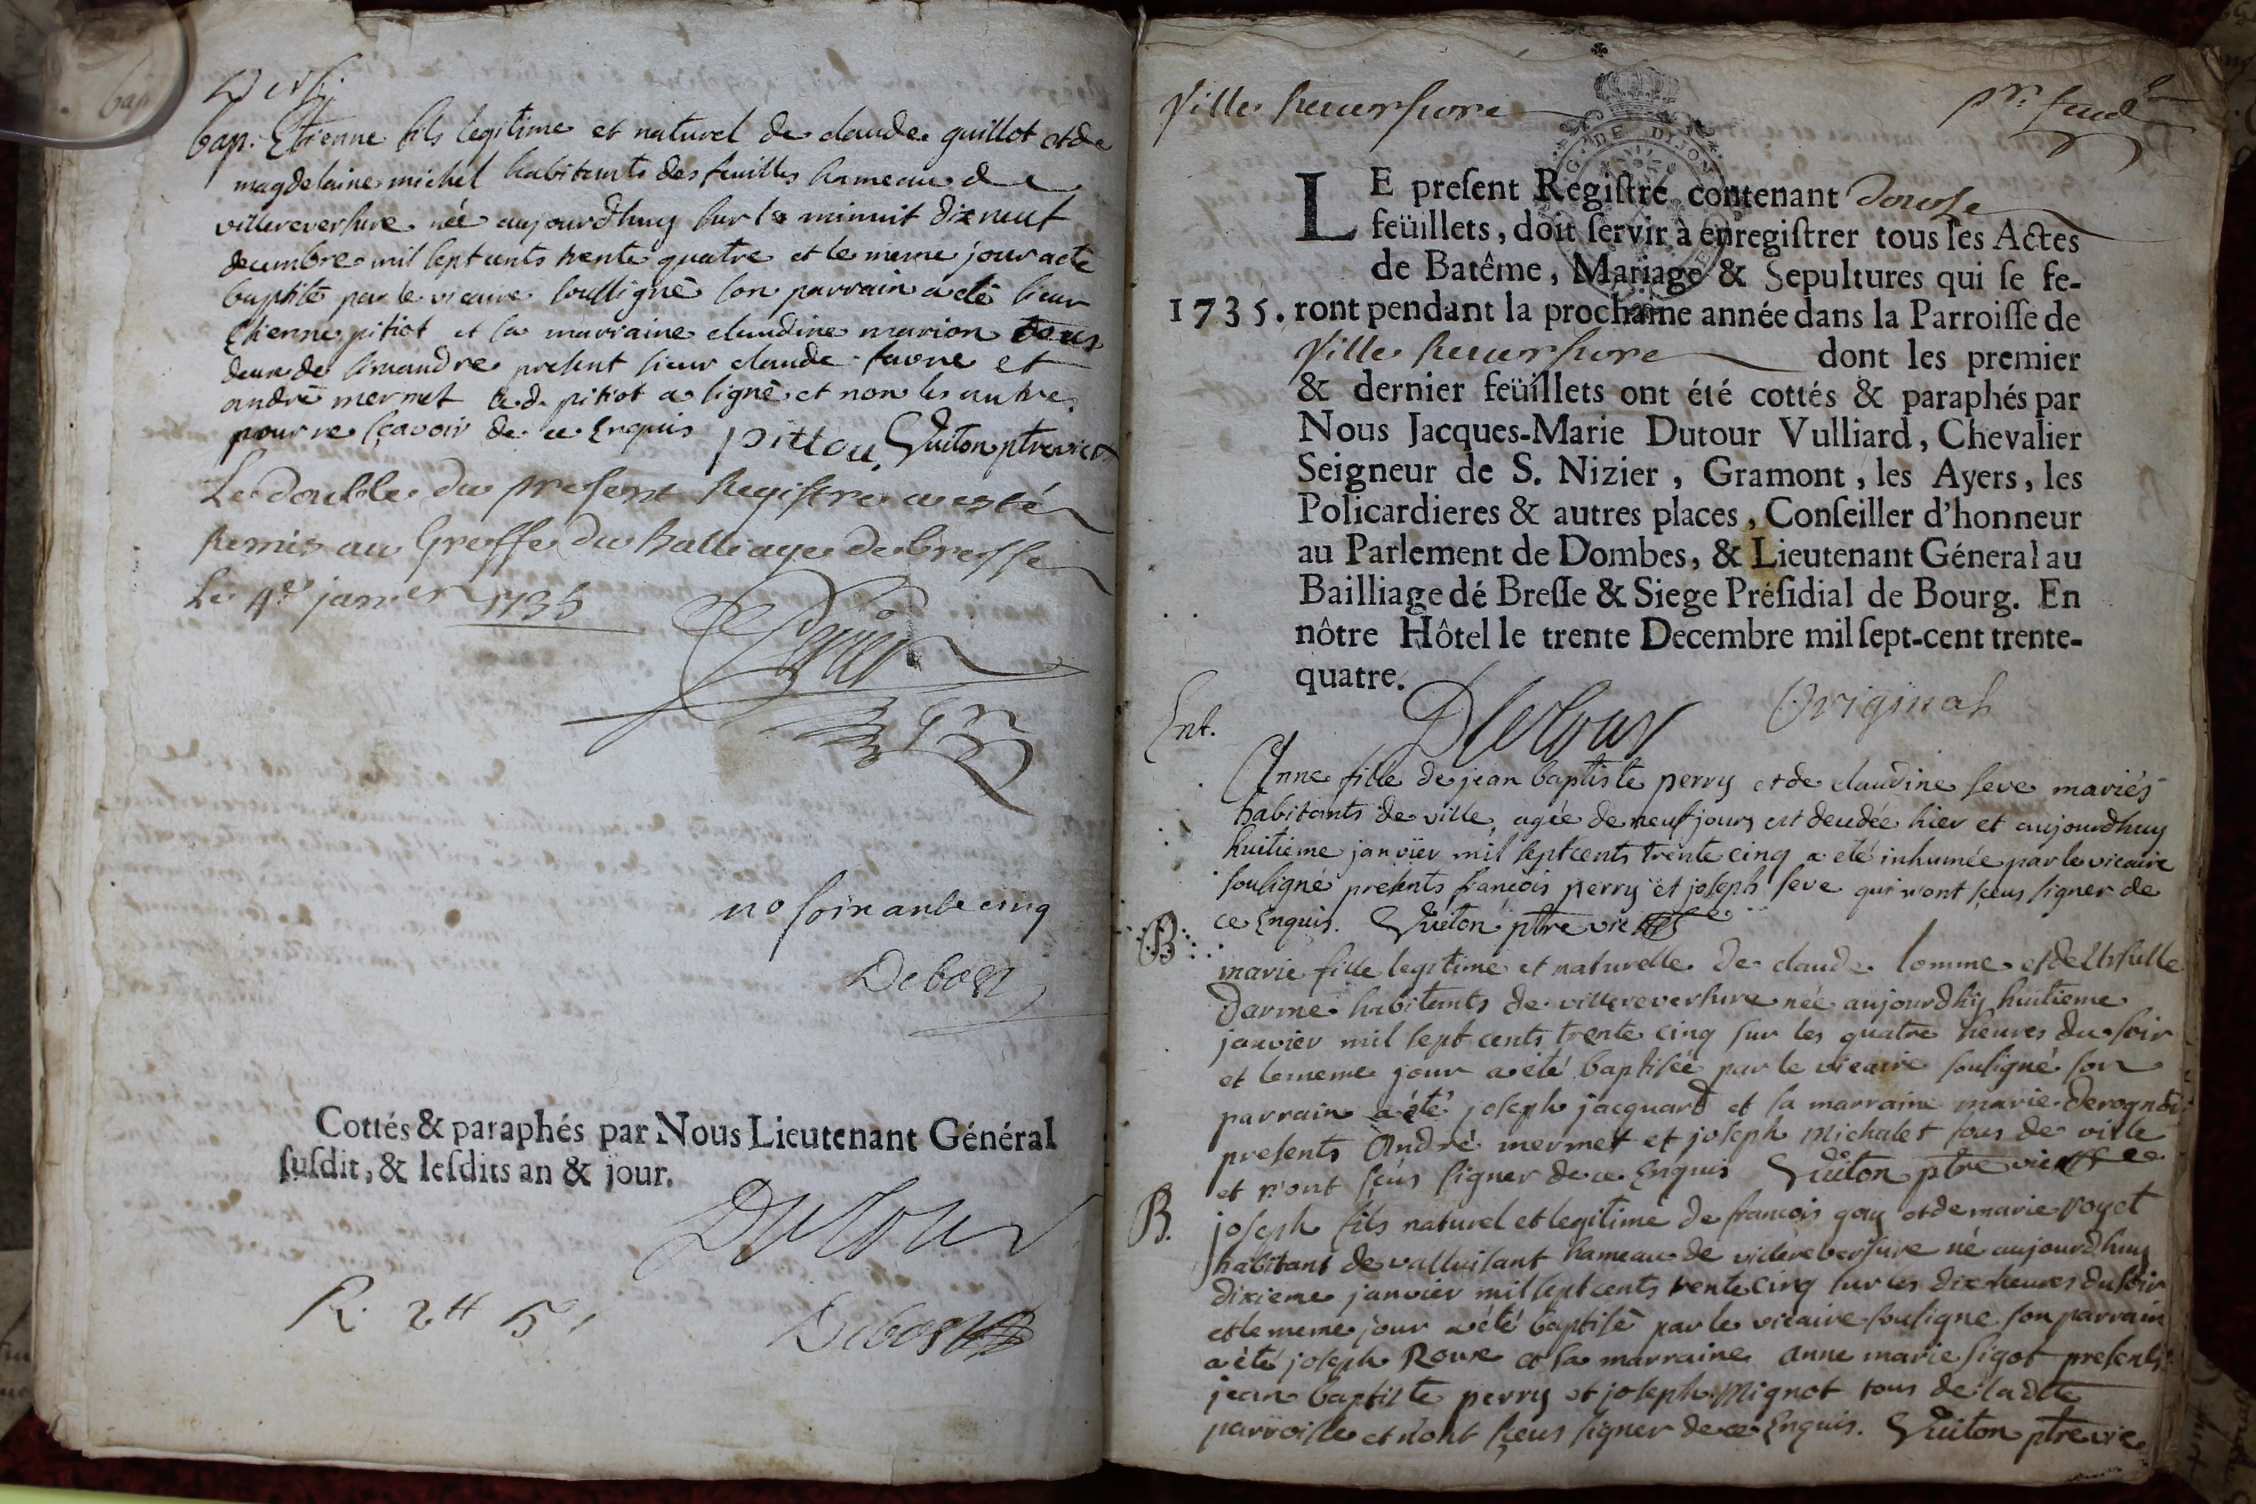 bap. Etienne fils legitime et naturel de claude guillot et de
magdelaine michel habitants des feuilles hameau de
villereversure né aujourdhuy sur le minuit dix neuf
decembre mil sept cents trente quatre et le meme jour a eté
baptisé par le vicaire soussigné son parrain a eté sieur
Etienne pitiot et la marraine claudine marion tous
deux de simandre present sieur claude favre et
andré mermet led. pitiot a signé et non les autre
pour ne sçavoir de ce Enquis pittou Guiton ptre vic
Le double du present Registre a esté
Remis au Greffe du balliage de bresse
Le 4e janvier 1735
no soixante cinq
Debost
Cottés & paraphés par Nous Lieutenant Général
susdit, & lesdits an & jour.
Dutour
R. 2tt 5s
Debost
Ville Reversure
G. DE DIJON
LE present Registre contenant douse
feüillets, doit servir à enregistrer tous les Actes
de Batême, Mariage & Sepultures qui se fe-
1735. ront pendant la prochaine année dans la Parroisse de
Ville Reversure dont les premier
& dernier feüillets ont été cottés & paraphés par
Nous Jacques-Marie Dutour Vulliard, Chevalier
Seigneur de S. Nizier, Gramont, les Ayers, les
Policardieres & autres places, Conseiller d'honneur
au Parlement de Dombes, & Lieutenant Géneral au
Bailliage dé Bresse & Siege Présidial de Bourg. En
nôtre Hôtel le trente Decembre mil sept-cent trente-
quatre.
Dutour Original
Ent.
Anne fille de jean baptiste perry et de claudine seve mariés
habitants de ville agée de neuf jours est decedée hier et aujourdhuy
huitieme janvier mil septcents trente cinq a eté inhumée par le vicaire
souligné presents francois perry et joseph seve qui n'ont sceus signer de
ce Enquis. Guiton ptre vic
B
marie fille legitime et naturelle de claude lomme et
darme habitants de villereversure née aujourdhuy huitieme
janvier mil sept cents trente cinq sur les quatre heures du soir
et le meme jour a été baptisée par le vicaire souligné son
parrain a été joseph jacquard et la marraine marie
presents André mermet et joseph Michalet tous de ville
et n'ont sceus signer de ce Enquis Guiton ptre vic
B.
joseph fils naturel et legitime de francois gay et de marie royet
habitant de valluisant hameau de villereversure né aujourdhuy
dixieme janvier mil sept cents trente cinq sur les dix heures du soir
et le meme jour a été baptisé par le vicaire souligne son parrain
a été joseph Roux et la marraine anne marie sigot presents
jean baptiste perry et joseph Mignot tous de ladte
parroisse et n'ont sceus signer de ce Enquis. Guiton ptre vic